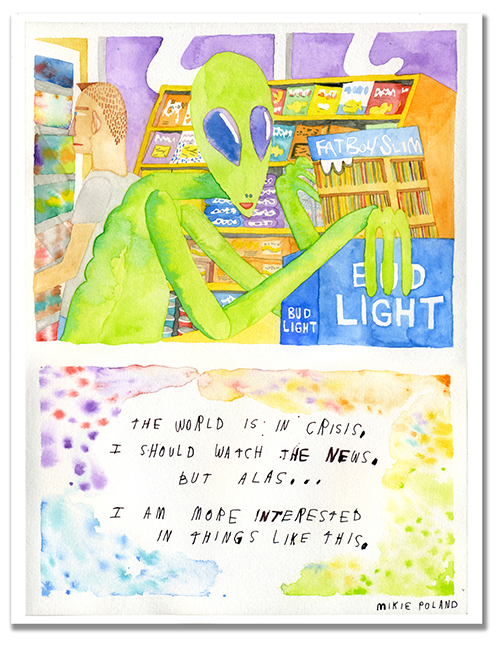 FATBOY SLIM
BUD
LIGHT
BUD
LIGHT
THE WORLD IS IN CRISIS,
I SHOULD WATCH THE NEWS.
BUT ALAS...
I AM MORE INTERESTED
IN THINGS LIKE THIS.
MIKIE POLAND